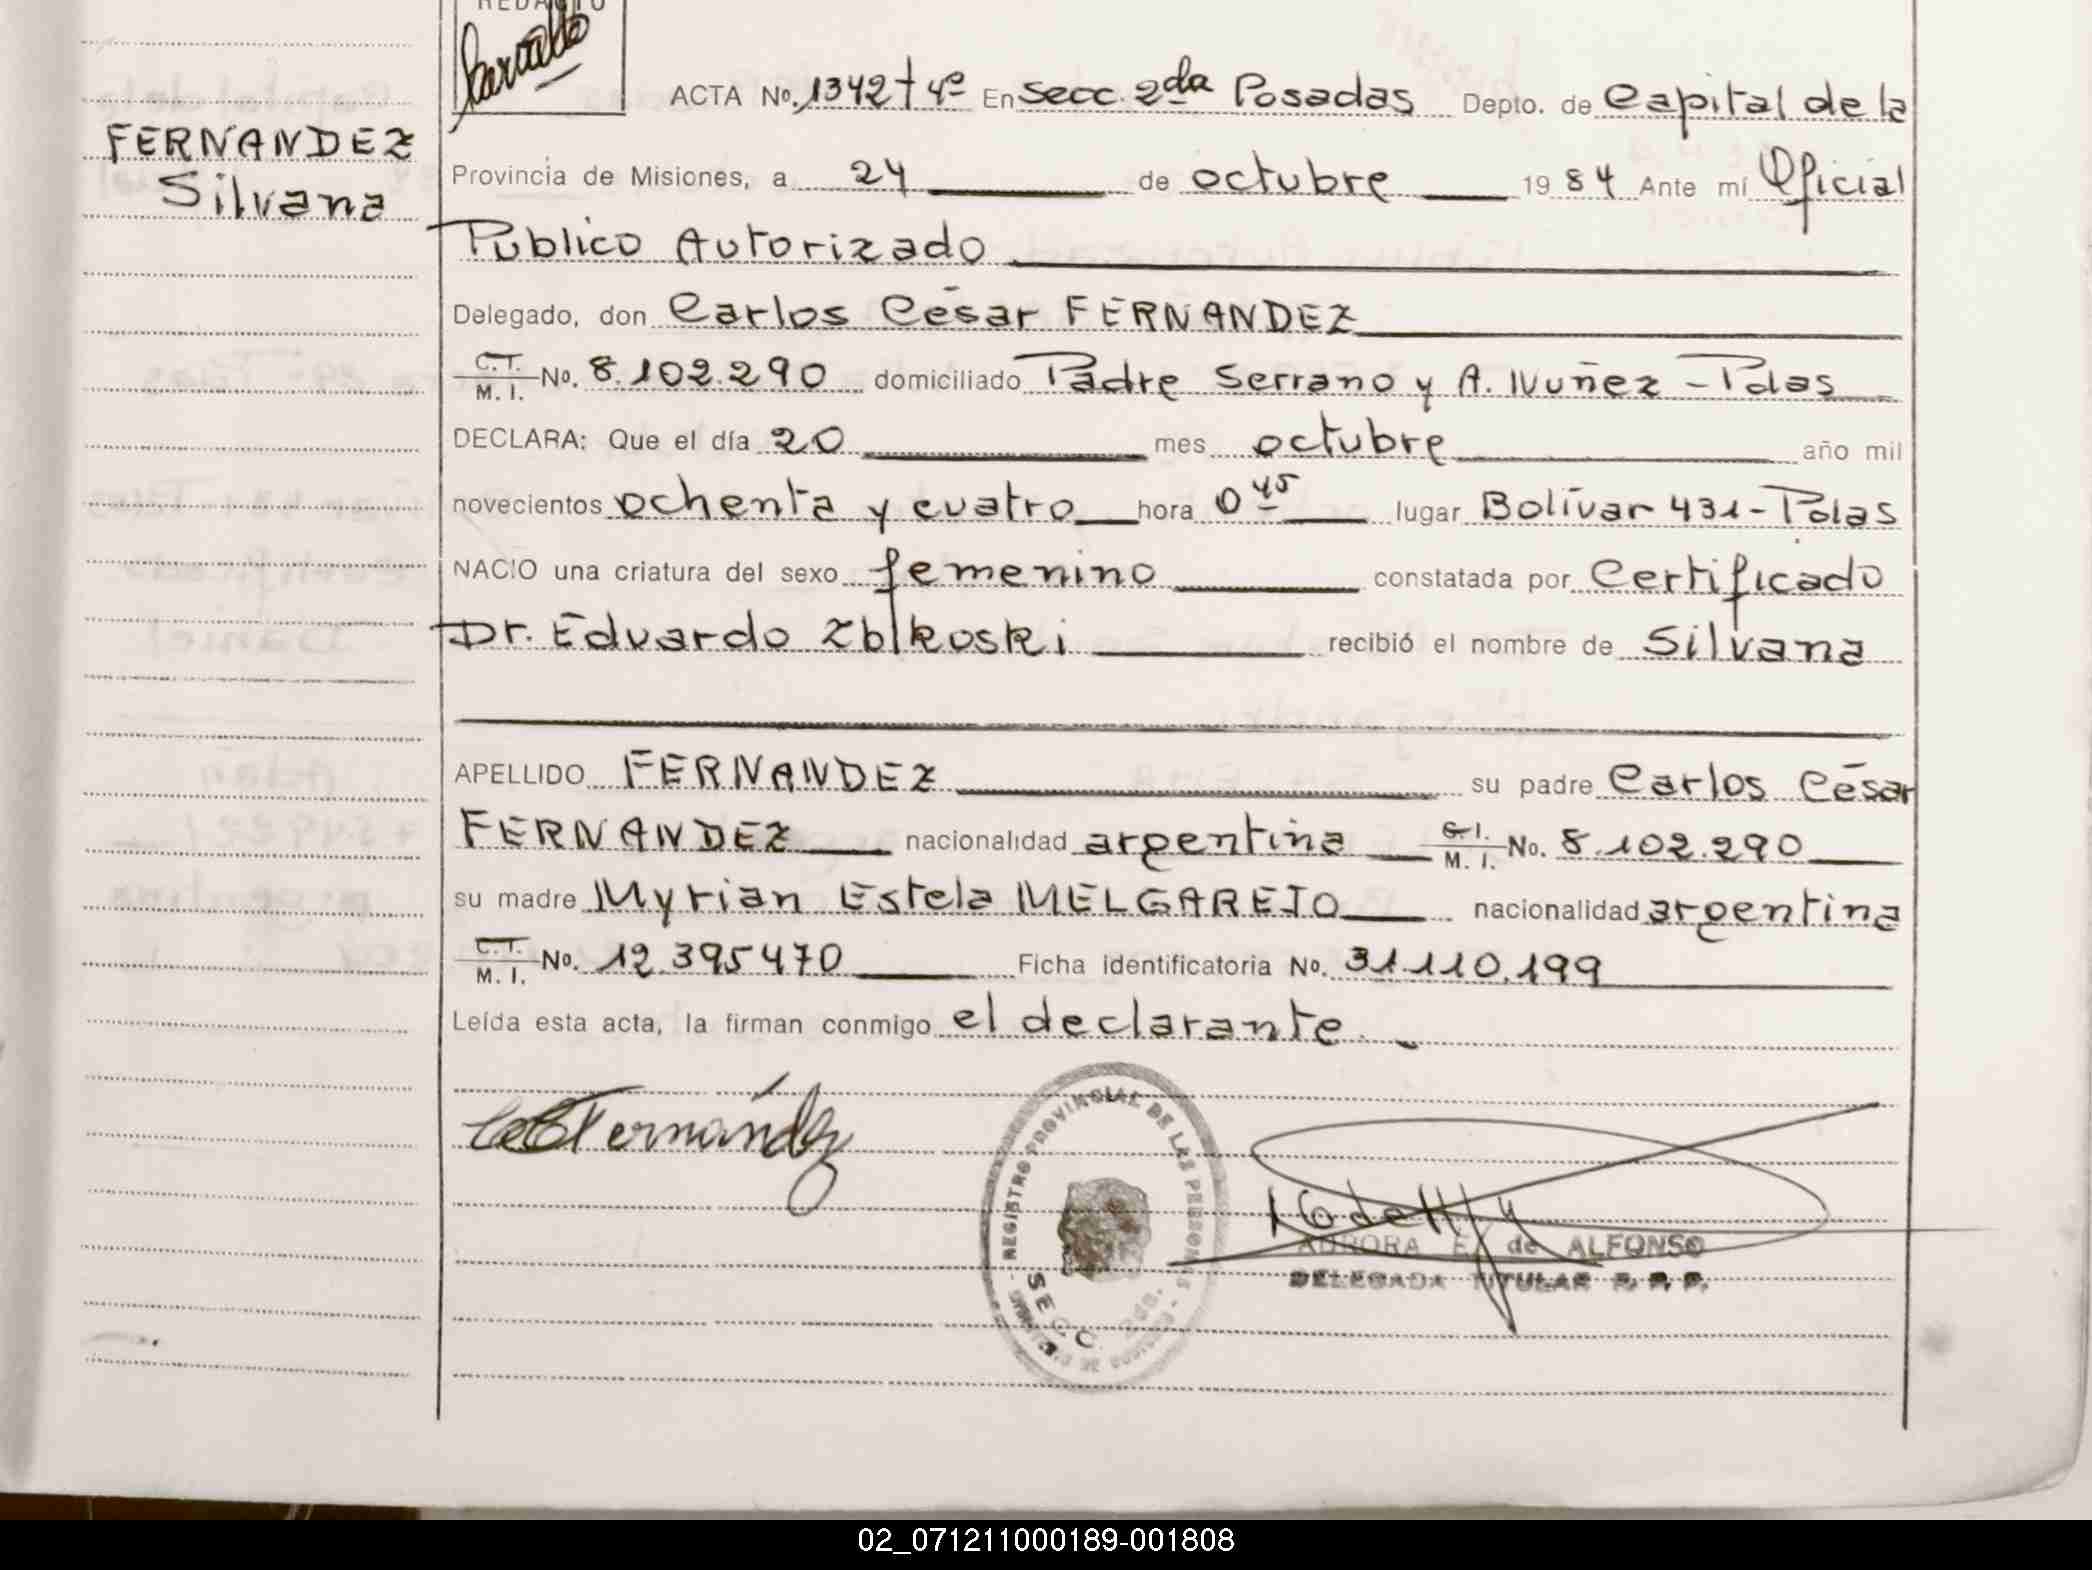 REDACTO
ACTA No. 1342 t 4º En secc. 2da Posadas Depto. de Capital de la
FERNANDEZ
Silvana
Provincia de Misiones, a 24 de octubre 1984 Ante mí Oficial
Publico Autorizado
Delegado, don Carlos César FERNANDEZ
C.I. M. I. No. 8.102.290 domiciliado Padre Serrano y A. Nuñez - Pdas
DECLARA: Que el día 20 mes octubre año mil
novecientos ochenta y cuatro hora 0 45 lugar Bolívar 431 - Pdas
NACIO una criatura del sexo femenino constatada por Certificado
Dr. Eduardo Zblkoski recibió el nombre de Silvana
APELLIDO FERNANDEZ su padre Carlos César
FERNANDEZ nacionalidad argentina C.I. M. I. No. 8.102.290
su madre Myrian Estela MELGAREJO nacionalidad argentina
C.I. M. I. No. 12.395470 Ficha identificatoria No. 31.110.199
Leída esta acta, la firman conmigo el declarante.
Fernández
REGISTRO PROVINCIAL DE LAS PERSONAS
SECC. 2da.
AURORA E. de ALFONSO
DELEGADA TITULAR R. P. P.
02_071211000189-001808